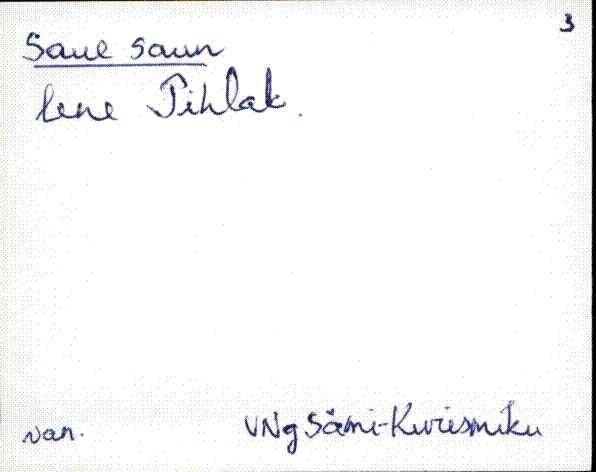 3
Saue saun
Lene Pihlak.
van.
VNg Sämi-Kuristniku